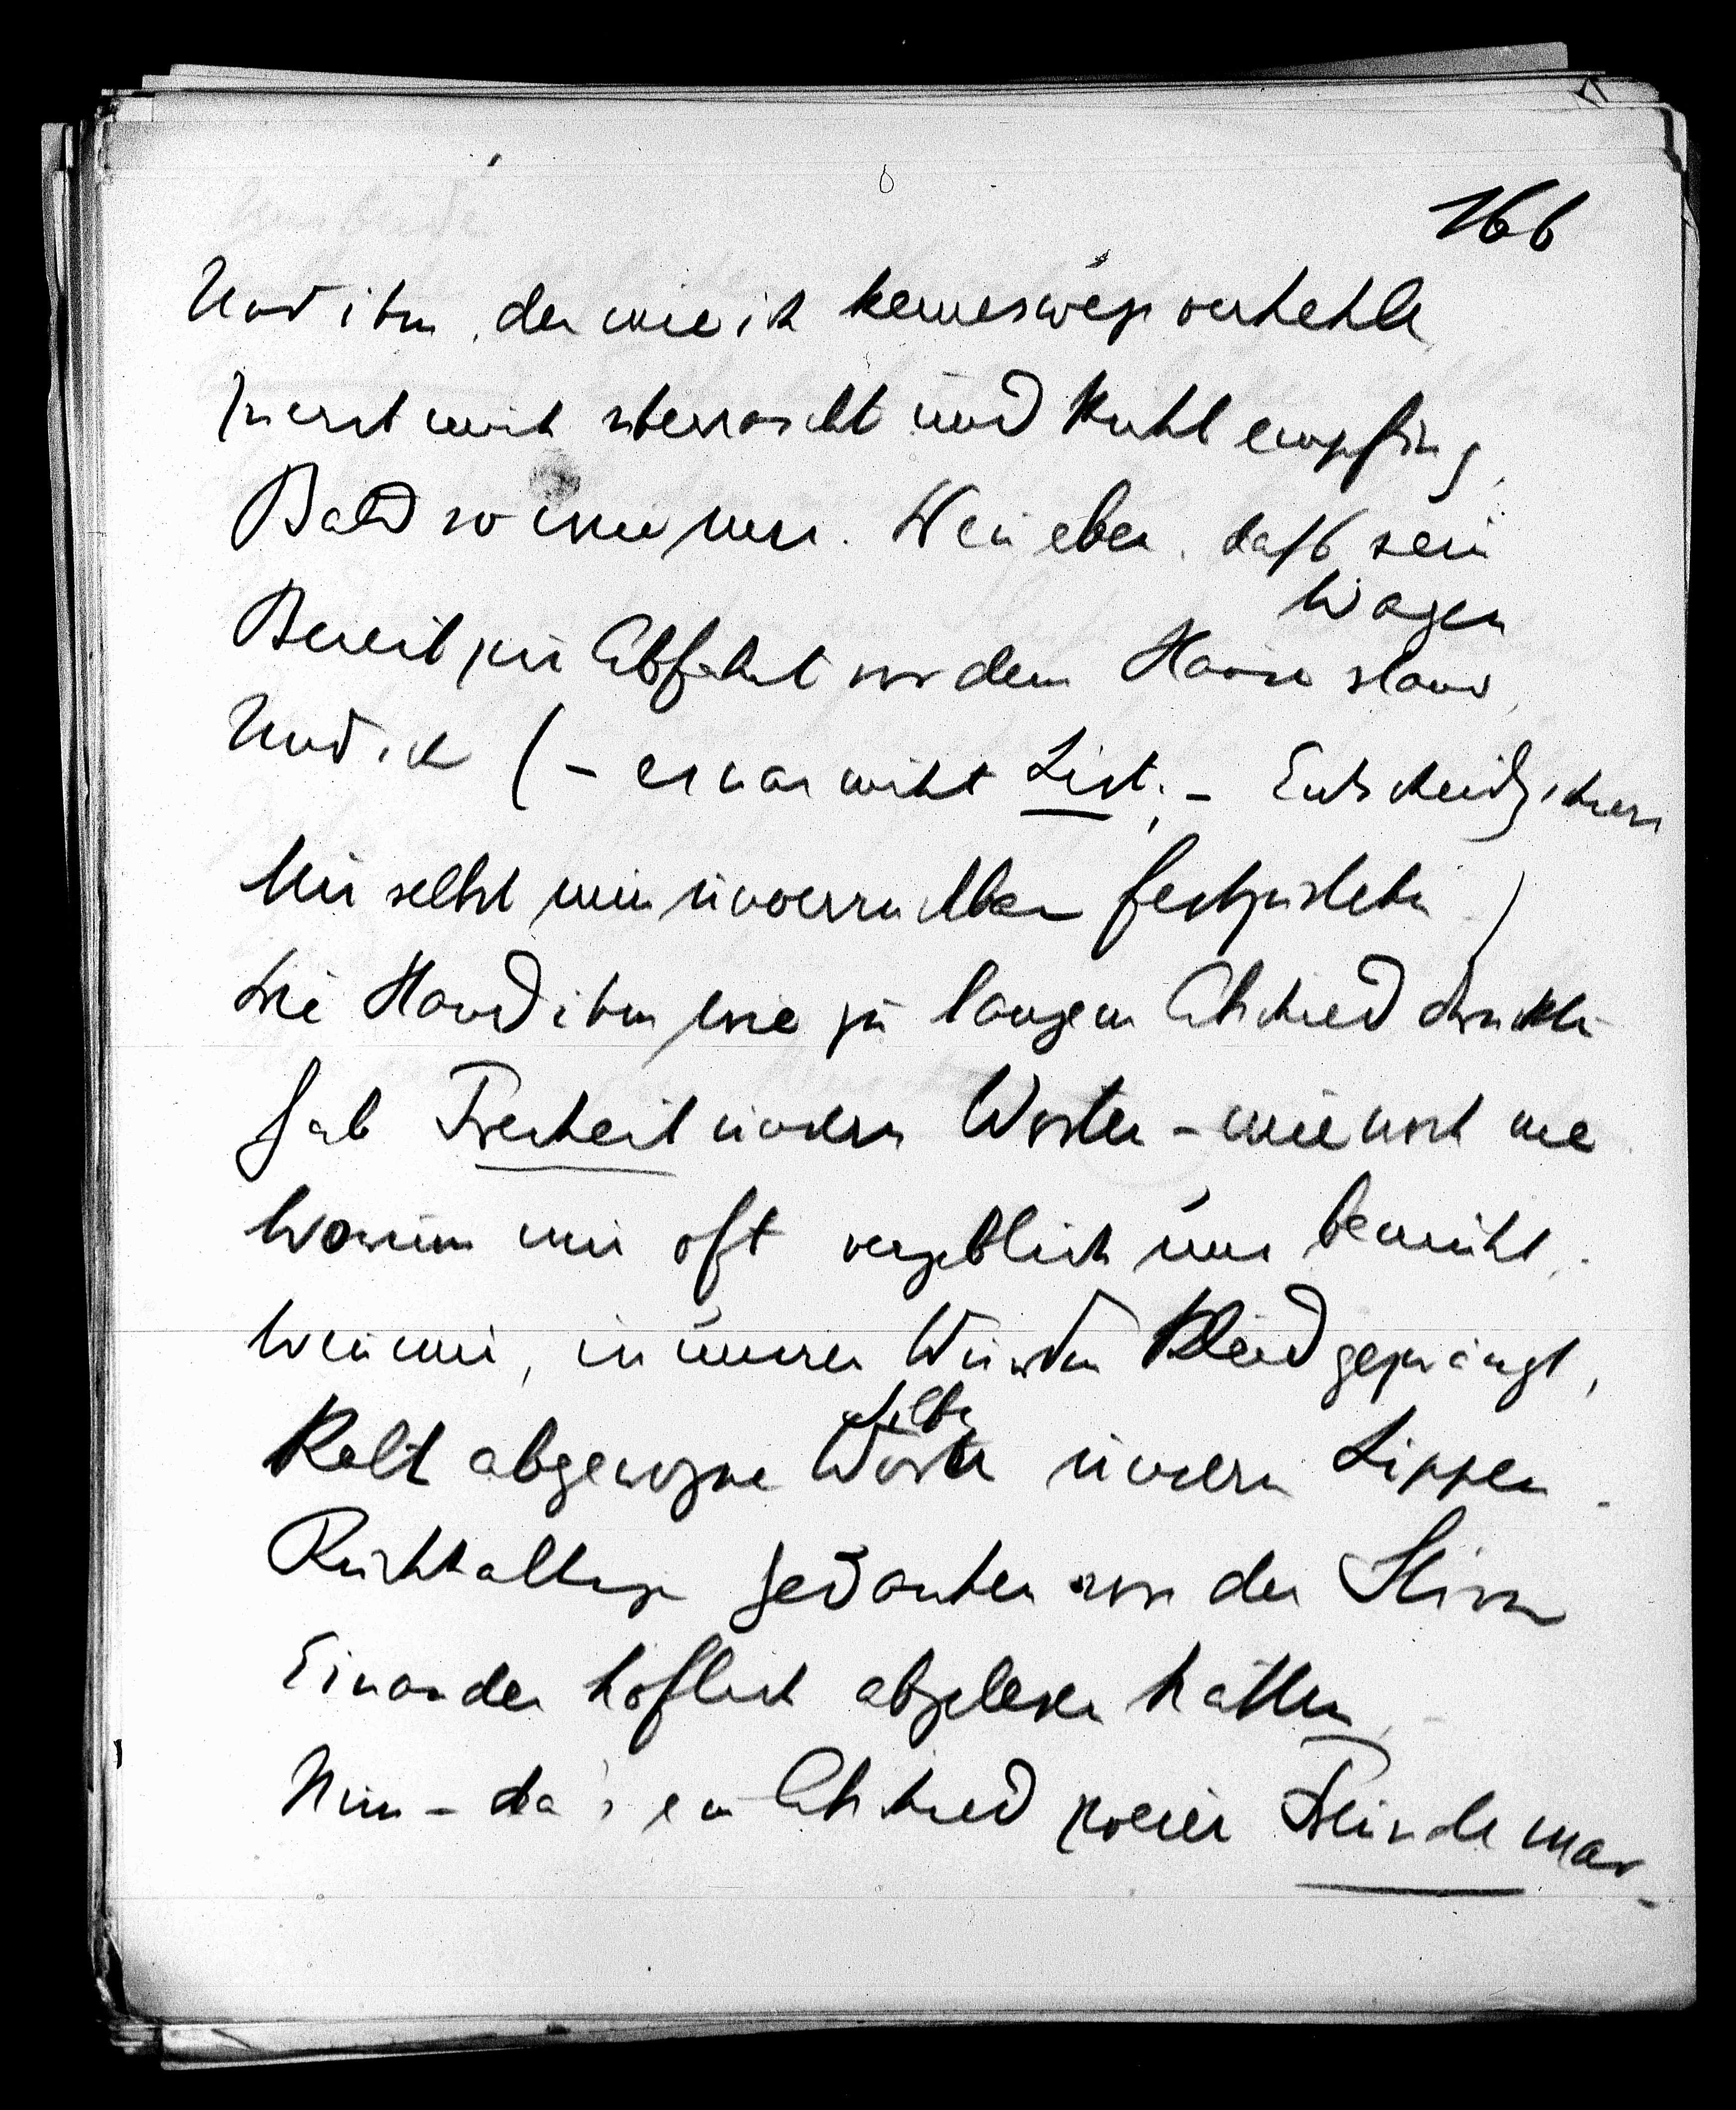 166
Und ihm, der wie ich keineswegs verhehle,
Zuerst mich überrascht und kühl empfing,
Bald so immer. Weil eben, daß sein
Wagen
Bereit zur Abfahrt vor dem Hause stand,
Und ich (– es war nicht List. – Entscheidg schien
Mir selbst nun unverrückbar festzustehn.)
Die Hand ihm wie zu langem Abschied drückte
Gab Freiheit unsern Worten – wie noch nie
Worum wir oft vergeblich uns bemüht,
Wenn wir, in unsrer Würden Kleid gezwängt,
Silben
Kalt abgewogne Worte unsern Lippen
Rückhaltige Gedanken von der Stirn
Einander höflich abgelesen hatten,
Nun – da's ein Abschied zweier Feinde war –